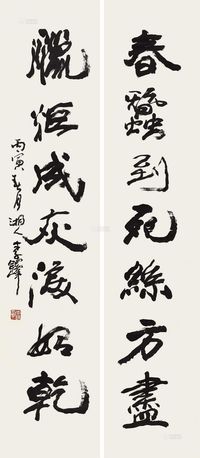 春蠶到死絲方盡
臘炬成灰淚始乾
丙寅春月湘人李鐸